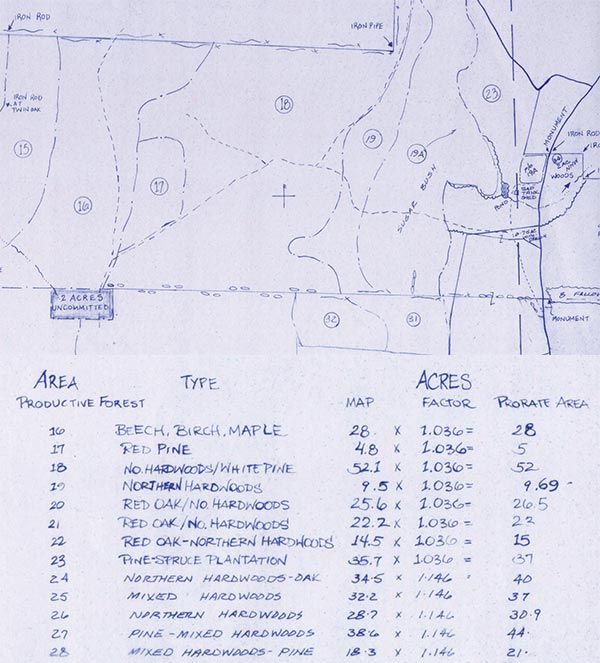 IRON ROD
IRON PIPE
IRON ROD
AT
TWIN OAK
18
23
15
19
19A
MONUMENT
IRON ROD
WOODS
17
16
SUGAR BUSH
POND
2 ACRES
UNCOMMITTED
32
31
MONUMENT
AREA TYPE ACRES
PRODUCTIVE FOREST MAP FACTOR PRORATE AREA
16 BEECH, BIRCH, MAPLE 28. x 1.036= 28
17 RED PINE 4.8 x 1.036= 5
18 NO. HARDWOODS/WHITE PINE 52.1 x 1.036= 52
19 NORTHERN HARDWOODS 9.5 x 1.036= 9.69
20 RED OAK/NO. HARDWOODS 25.6 x 1.036= 26.5
21 RED OAK/NO. HARDWOODS 22.2 x 1.036= 22
22 RED OAK-NORTHERN HARDWOODS 14.5 x 1.036= 15
23 PINE-SPRUCE PLANTATION 35.7 x 1.036= 37
24 NORTHERN HARDWOODS-OAK 34.5 x 1.146 = 40
25 MIXED HARDWOODS 32.2 x 1.146 37
26 NORTHERN HARDWOODS 28.7 x 1.146 30.9
27 PINE-MIXED HARDWOODS 38.6 x 1.146 44.
28 MIXED HARDWOODS-PINE 18.3 x 1.146 21.